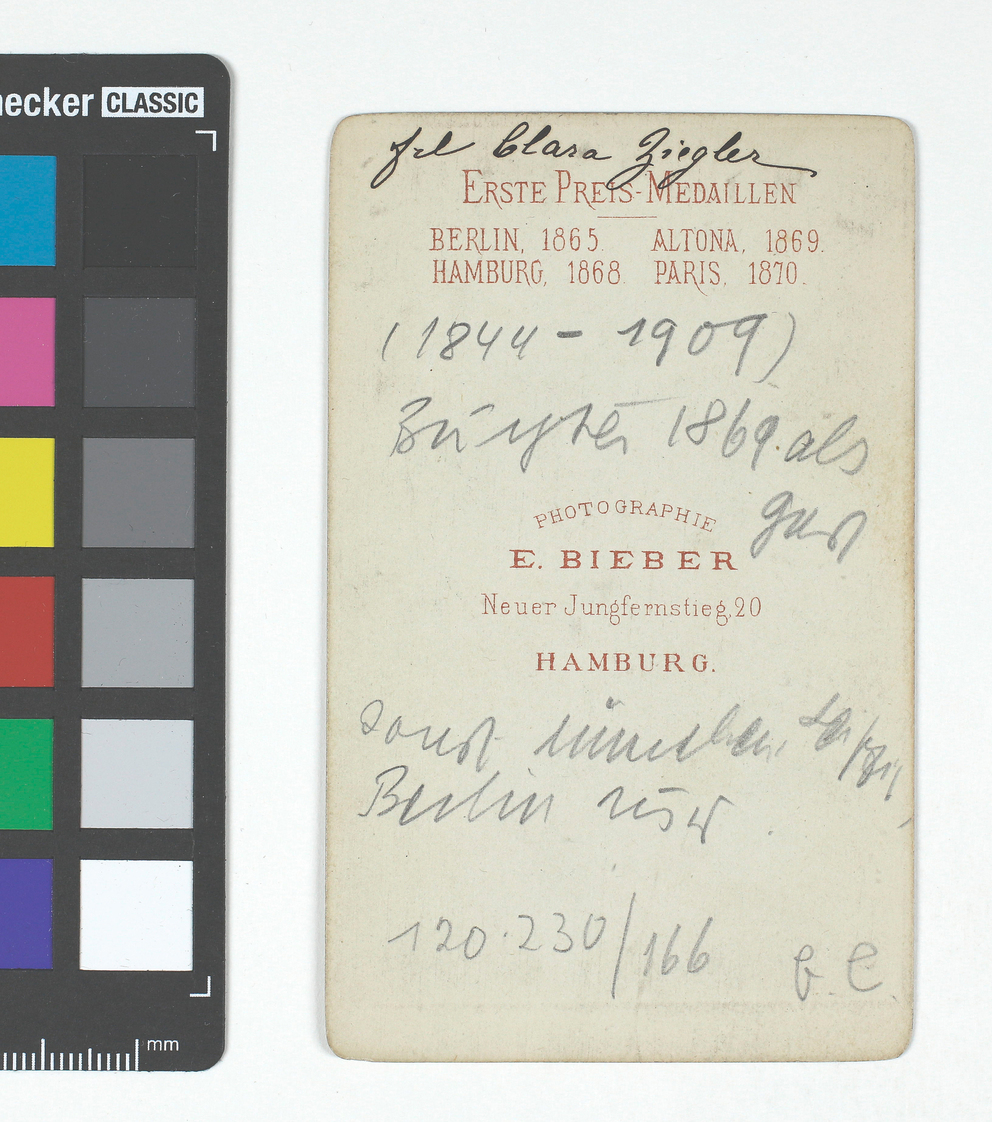 ecker CLASSIC
frl Clara Ziegler
ERSTE PREIS-MEDAILLEN
BERLIN, 1865. ALTONA, 1869.
HAMBURG, 1868. PARIS, 1870.
(1844 - 1909)
1869. als
Gast
PHOTOGRAPHIE
E. BIEBER
Neuer Jungfernstieg, 20
HAMBURG.
sonst München, Leipzig,
Berlin usw.
120.230/166
mm